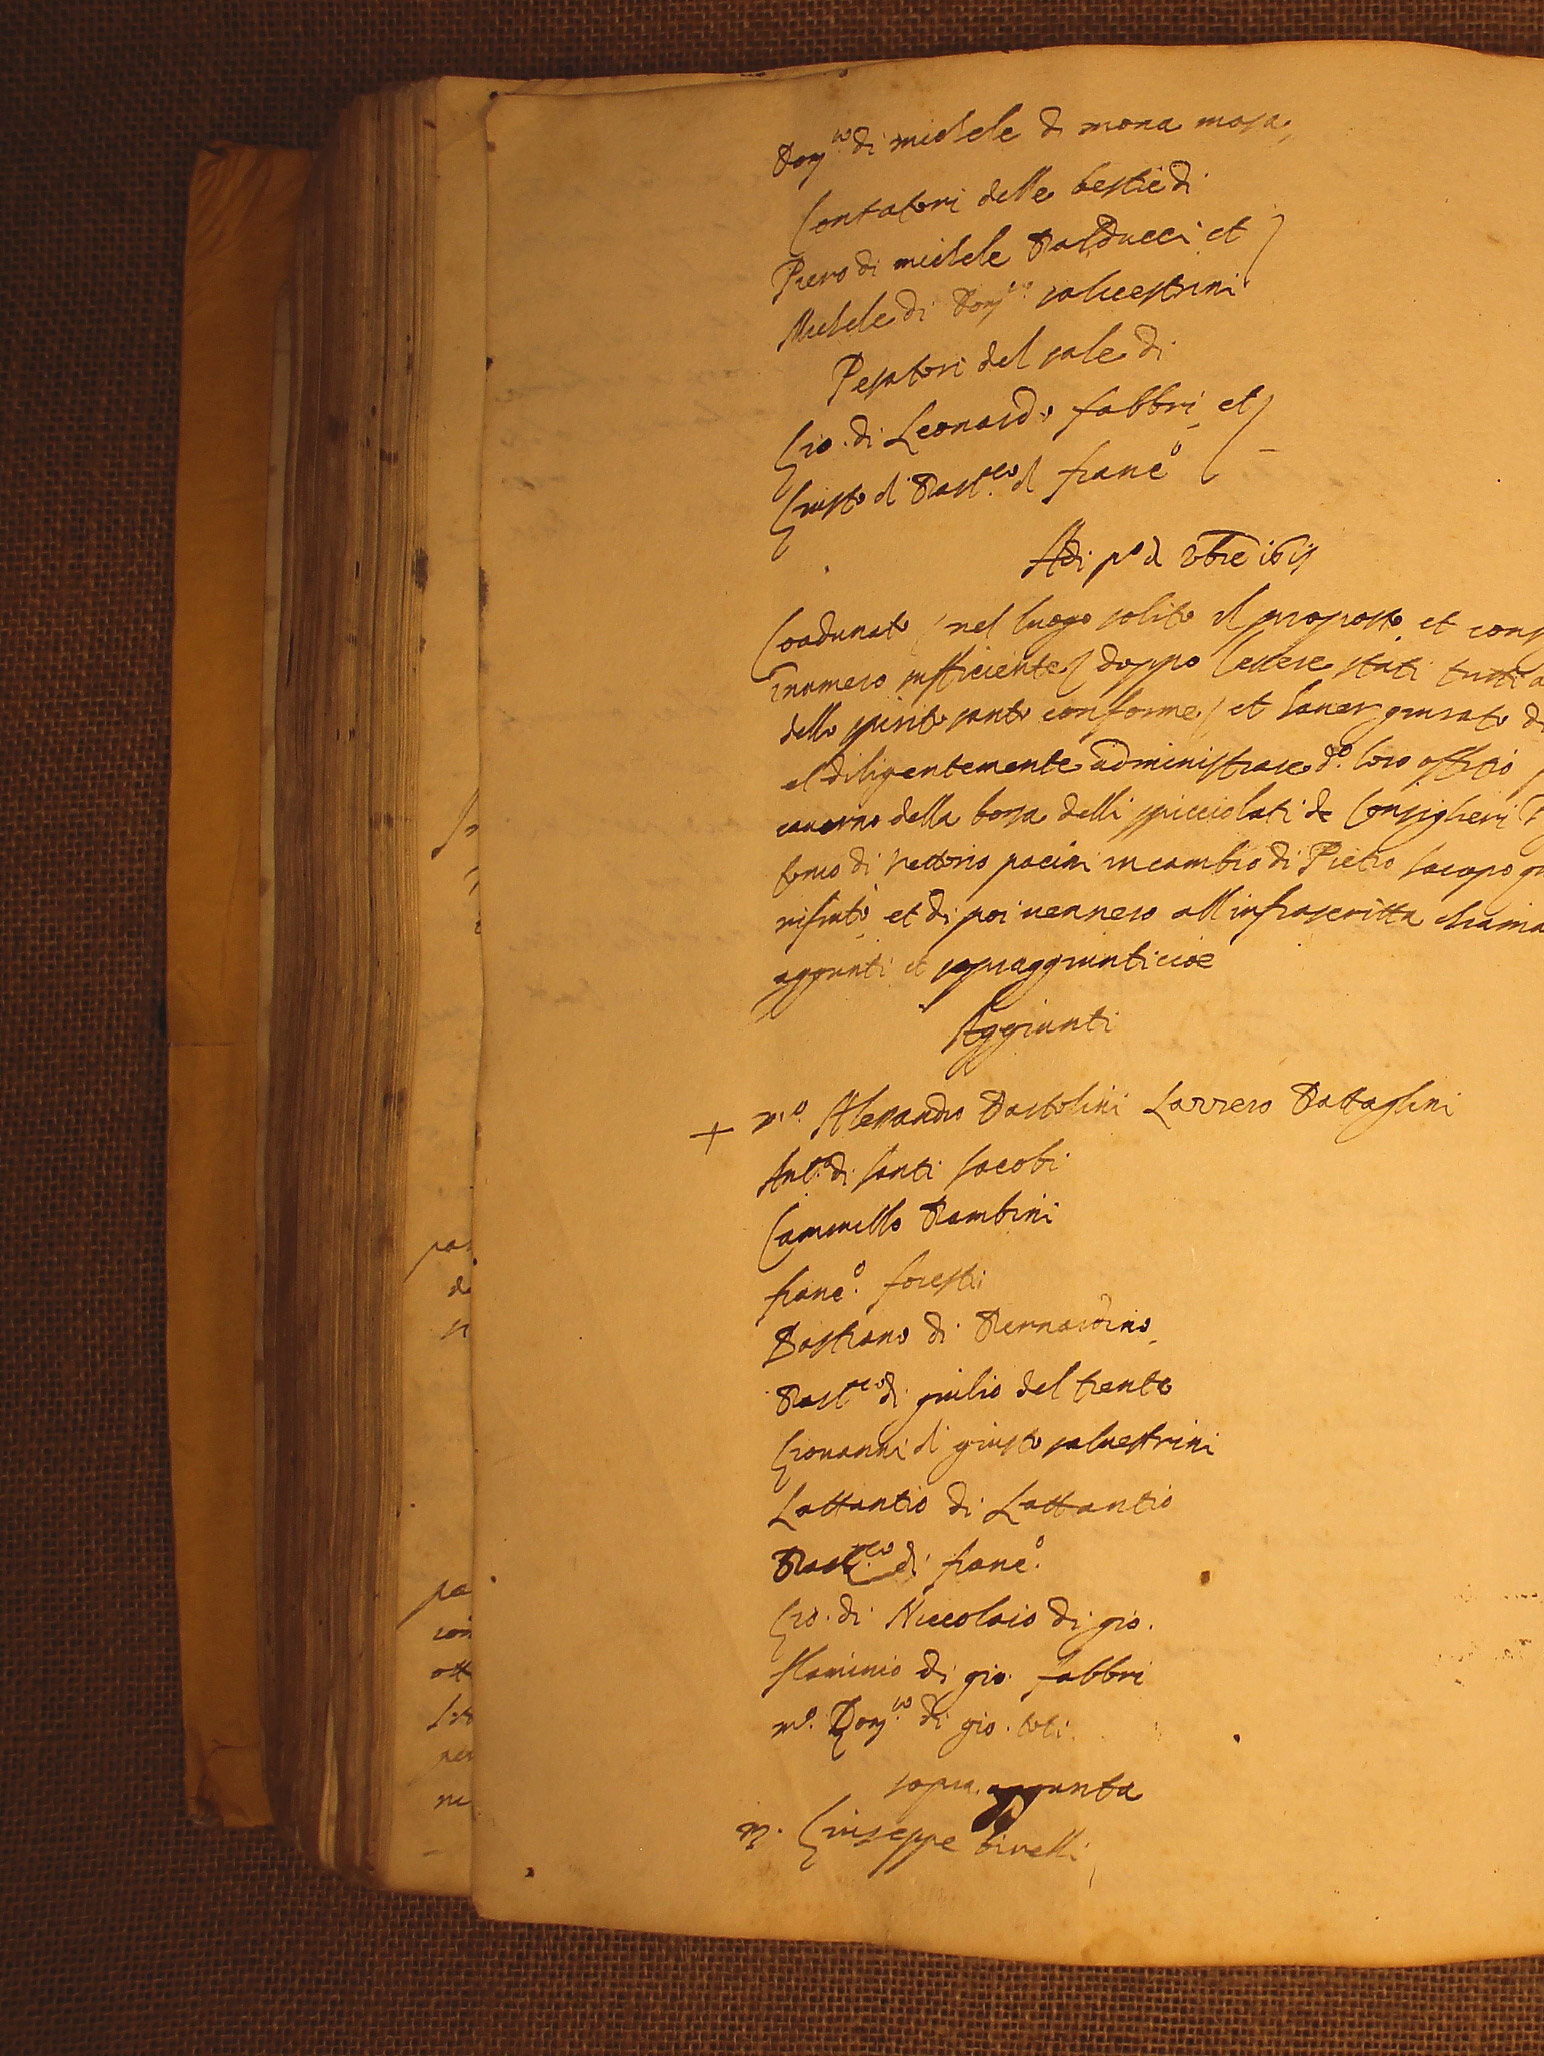 Dom.co di michele di mona masa
Contatori delle bestie di
Piero di michele Balducci et
Michele di Dom.co saluestrini
Pesatori del sale di
Gio. di Leonardo fabbri et
Giusto di Bast.eo di franc.o
Adi p.o di 8bre
Coadunato nel luogo solito il proposto et cons
in numero sufficiente doppo essere stati tutti a
dello spirito santo conforme et hauer giurato di
el diligentemente administrare d.o loro offitio
cauorno della borsa delli spicciolati de Consiglieri
di uettorio pacini in cambio di Pietro Jacopo
rifiutò et di poi uennero all infrascritta chiama
aggiunti et sopraggiunti cioè
Aggiunti
+ m.o Alessandro Bartolini Lazzero Battaglini
Ant.o di santi Jacobi
Cammillo Bambini
franc.o foresti
Bastiano di Bernardino
Bast.eo di giulio del trento
Giouanni di giusto saluestrini
Lattantio di Lattantio
Bast.eo di franc.o
Gio. di Niccolaio di gio.
flaminio di gio. fabbri
m.o Dom.co di gio. toti
sopra aggiunta
m. Giuseppe